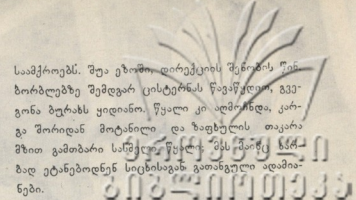 საამქროებს. შუა ეზოში, დირექციის შენობის წინ,
ბორბლებზე შემდგარ ცისტერნას წავაწყდით, გვე-
გონა ბურახს ყიდიანო. წყალი კი აღმოჩნდა, კარ-
გა შორიდან მოტანილი და ზაფხულის თაკარა
მზით გამთბარი სასმელი წყალი. მას მაინც ხარ-
ბად ეტანებოდნენ სიცხისაგან გათანგული ადამია-
ნები.
ეროვნული
ბიბლიოთეკა